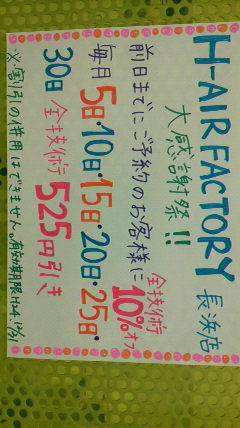 H-AIR FACTORY 長浜店
大感謝祭!!
前日までにご予約のお客様に 全技術10%オフ
毎月5日・10日・15日・20日・25日・
30日 全技術525円引き
※割引の併用はできません。有効期限H24.12/31